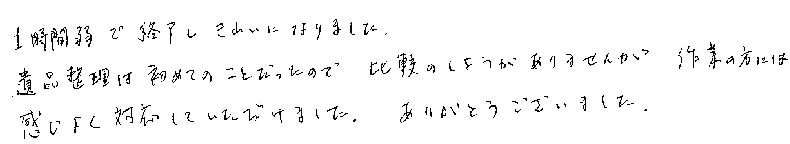 1時間弱で終了しきれいになりました。
遺品整理は初めてのことだったので 比較のしようがありませんが 作業の方には
感じよく対応していただけました。 ありがとうございました。